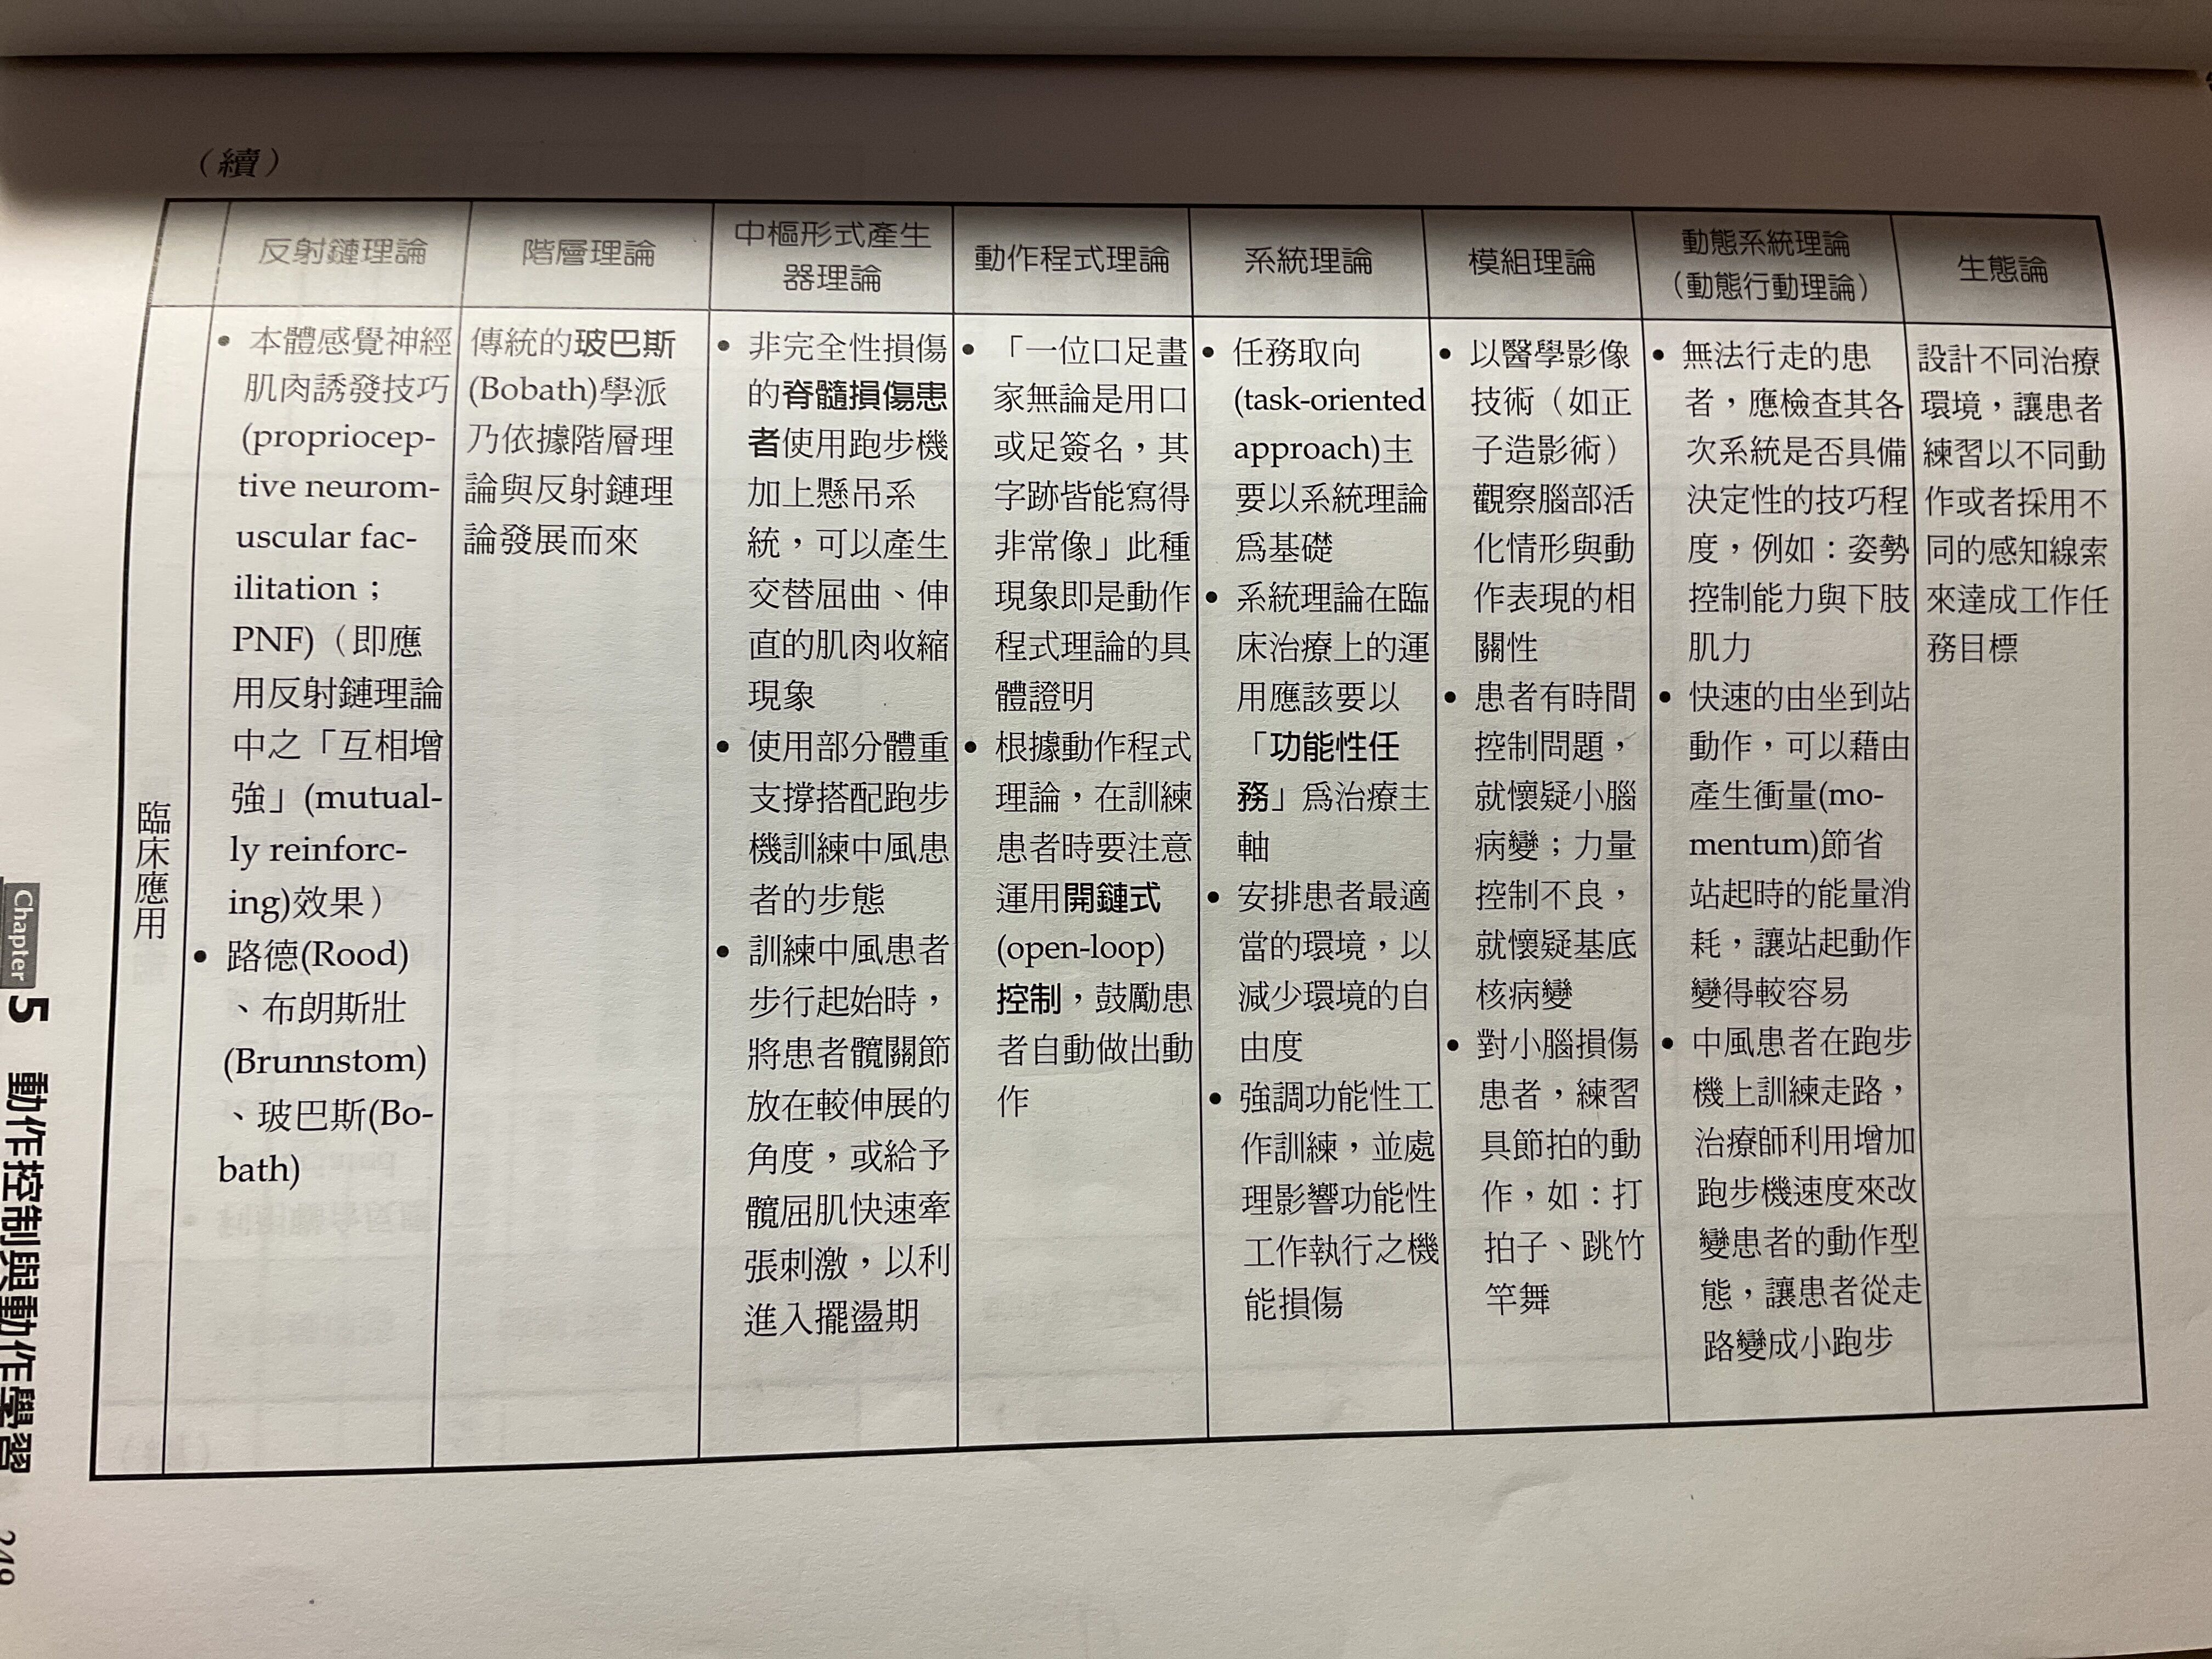 （續）
反射鏈理論
階層理論
中樞形式產生
器理論
動作程式理論
系統理論
模組理論
動態系統理論
（動態行動理論）
生態論
臨床應用
• 本體感覺神經
肌肉誘發技巧
(propriocep-
tive neurom-
uscular fac-
ilitation；
PNF)（即應
用反射鏈理論
中之「互相增
強」(mutual-
ly reinforc-
ing)效果）
• 路德(Rood)
、布朗斯壯
(Brunnstom)
、玻巴斯(Bo-
bath)
傳統的玻巴斯
(Bobath)學派
乃依據階層理
論與反射鏈理
論發展而來
• 非完全性損傷
的脊髓損傷患
者使用跑步機
加上懸吊系
統，可以產生
交替屈曲、伸
直的肌肉收縮
現象
• 使用部分體重
支撐搭配跑步
機訓練中風患
者的步態
• 訓練中風患者
步行起始時，
將患者髖關節
放在較伸展的
角度，或給予
髖屈肌快速牽
張刺激，以利
進入擺盪期
• 「一位口足畫
家無論是用口
或足簽名，其
字跡皆能寫得
非常像」此種
現象即是動作
程式理論的具
體證明
• 根據動作程式
理論，在訓練
患者時要注意
運用開鏈式
(open-loop)
控制，鼓勵患
者自動做出動
作
• 任務取向
(task-oriented
approach)主
要以系統理論
為基礎
• 系統理論在臨
床治療上的運
用應該要以
「功能性任
務」為治療主
軸
• 安排患者最適
當的環境，以
減少環境的自
由度
• 強調功能性工
作訓練，並處
理影響功能性
工作執行之機
能損傷
• 以醫學影像
技術（如正
子造影術）
觀察腦部活
化情形與動
作表現的相
關性
• 患者有時間
控制問題，
就懷疑小腦
病變；力量
控制不良，
就懷疑基底
核病變
• 對小腦損傷
患者，練習
具節拍的動
作，如：打
拍子、跳竹
竿舞
• 無法行走的患
者，應檢查其各
次系統是否具備
決定性的技巧程
度，例如：姿勢
控制能力與下肢
肌力
• 快速的由坐到站
動作，可以藉由
產生衝量(mo-
mentum)節省
站起時的能量消
耗，讓站起動作
變得較容易
• 中風患者在跑步
機上訓練走路，
治療師利用增加
跑步機速度來改
變患者的動作型
態，讓患者從走
路變成小跑步
設計不同治療
環境，讓患者
練習以不同動
作或者採用不
同的感知線索
來達成工作任
務目標
Chapter 5 動作控制與動作學習 249